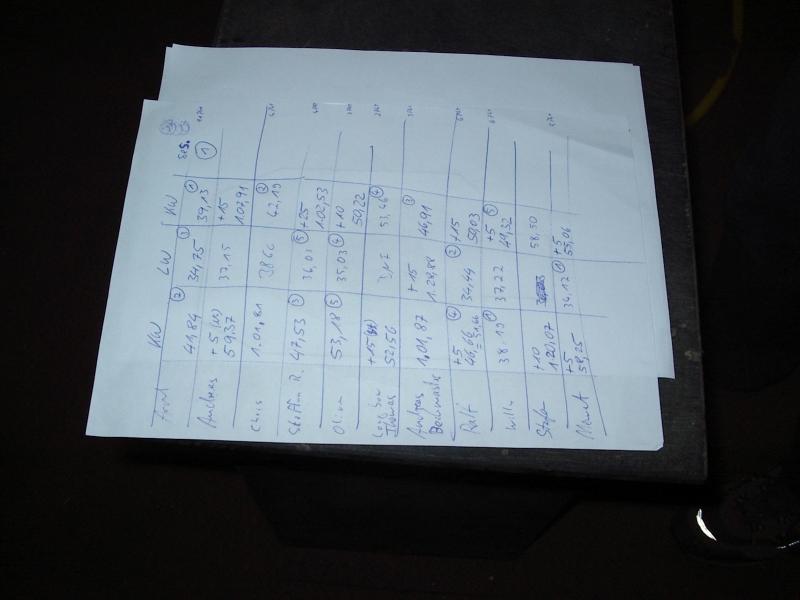 KW LW KW Ges.
41,84 ② 34,75 ③ 39,13 ① ①
Andreas +5 59,37 37,15 +15 1.07,91
Chris 1.01,81 38,60 42,19 ②
Steffen R. 47,53 ③ 36,01 ⑤ +25 1.02,53
Oliver 53,18 ⑤ 35,03 ④ +10 50,22
Thomas +15 52,56 53,46 ④
Andreas 1.01,87 +15 1.24,88 46,91 ③
Ralf +5 46,66 ④ 34,44 ② +15 59,03
Willi 38,19 ① 37,22 +5 49,32 ⑤
Stefan +10 1.20,07 58,50
+5 58,25 34,12 ① +5 55,06